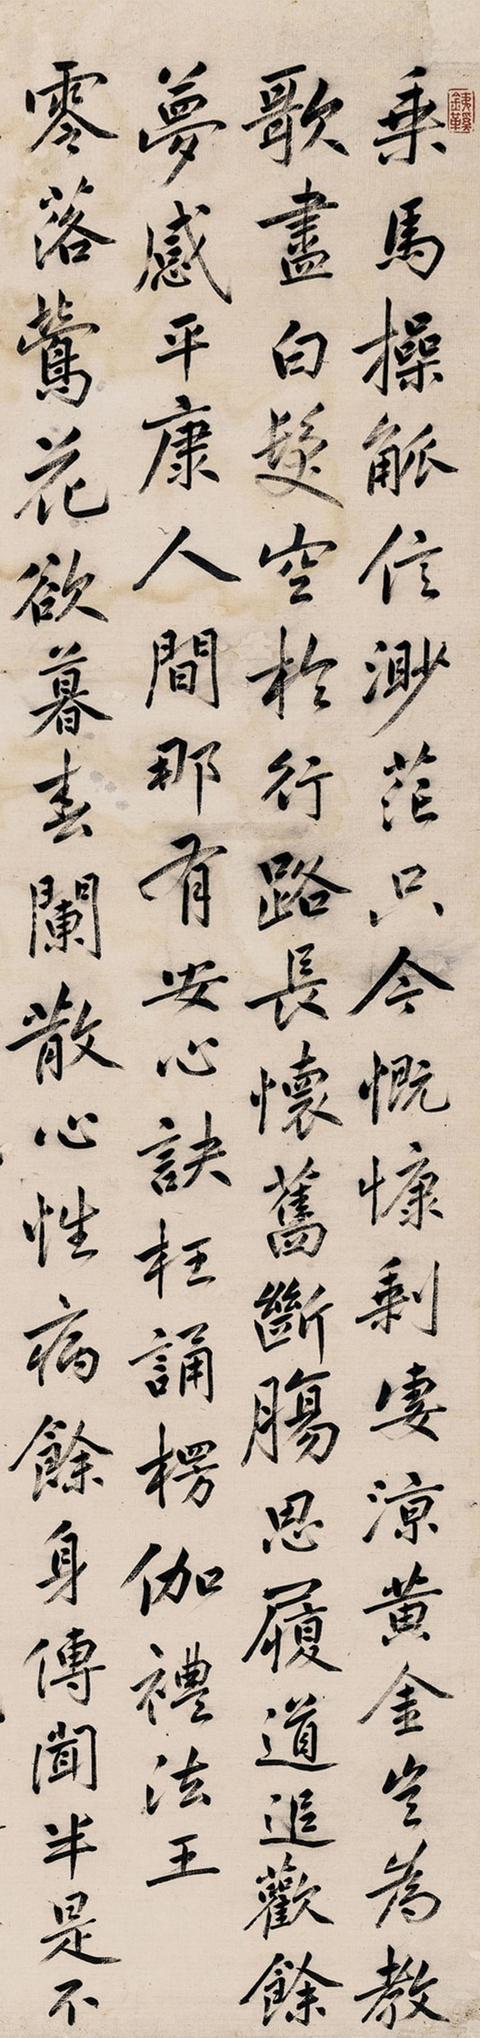 乘馬操觚信渺茫只今慨慷剩凄涼黃金豈為教
歌盡白髮空於行路長懷舊斷腸思履道追歡餘
夢感平康人間那有安心訣枉誦楞伽禮法王
零落鶯花欲暮春闌散心性病餘身傳聞半是不